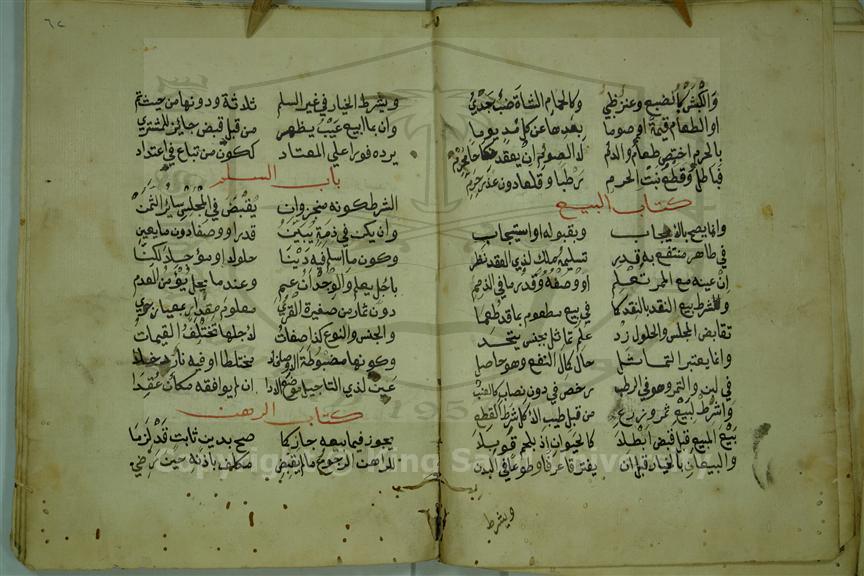 والكبش كالضبع وعنز ظبي وكالحمام الشاة ضب جدي
او الطعام قيمة او صوما بعدها عن كل مد يوما
بالحرم اختص طعام والدم لا الصوم ان يعقد نكاحا محرم
فباطل وقطع نبت الحرم رطبا وقلعا دون عذر حرم
كتاب البيع
وانما يصح بالايجاب وبقبوله او استيجاب
في طاهر منتفع به قدر تسليمه ملك لذي العقد نظر
ان عينه مع الممر تعلم او وصفه وقدر ما في الذمم
وشرط بيع النقد بالنقد كما في بيع مطعوم بما قد طعما
تقابض المجلس والحلول زد علم تماثل بجنس يتحد
وانما يعتبر التماثل حال كمال النفع وهو حاصل
في لبن والتمر وهو في الرطب رخص في دون نصاب كالعنب
واشرط لبيع ثمر وزرع من قبل طيب الاكل شرط القطع
بيع المبيع قبل قبض ابطلا كالحيوان اذ بلحم قوبلا
والبيعان بالخيار قبل ان يفترقا عرفا وطوعا في البدن
ويشرط
٦٢
ويشرط الخيار في غير السلم ثلاثة ودونها من حيث تم
وان بما ابيع عيب يظهر من قبل قبض جائز للمشتري
يرده فورا على المعتاد ككون من تباع في اعتداد
باب السلم
الشرط كونه منجزا وان يقبض في المجلس سائر الثمن
وان يكن في ذمة يبين قدرا ووصفا دون ما يعين
وكون ما اسلم فيه دينا حلولا او مؤجلا لكنا
باجل يعلم والوجدان عم وعند ما يحل يؤمن العدم
دون ثمار من صغيرة القرى معلوم مقدار بمعيار جرى
والجنس والنوع كذا صفات لاجلها تختلف القيمات
وكونها مضبوطة الاوصاف لا مختلطا او فيه نار دخلا
عين لذي التاجيل موضع الادا ان لم يوافقه مكان عقدا
كتاب الرهن
يجوز فيما بيعه جاز كما صح بدين ثابت قد لزما
للراهن الرجوع ما لم يقبض مكلف باذنه حيث رضي